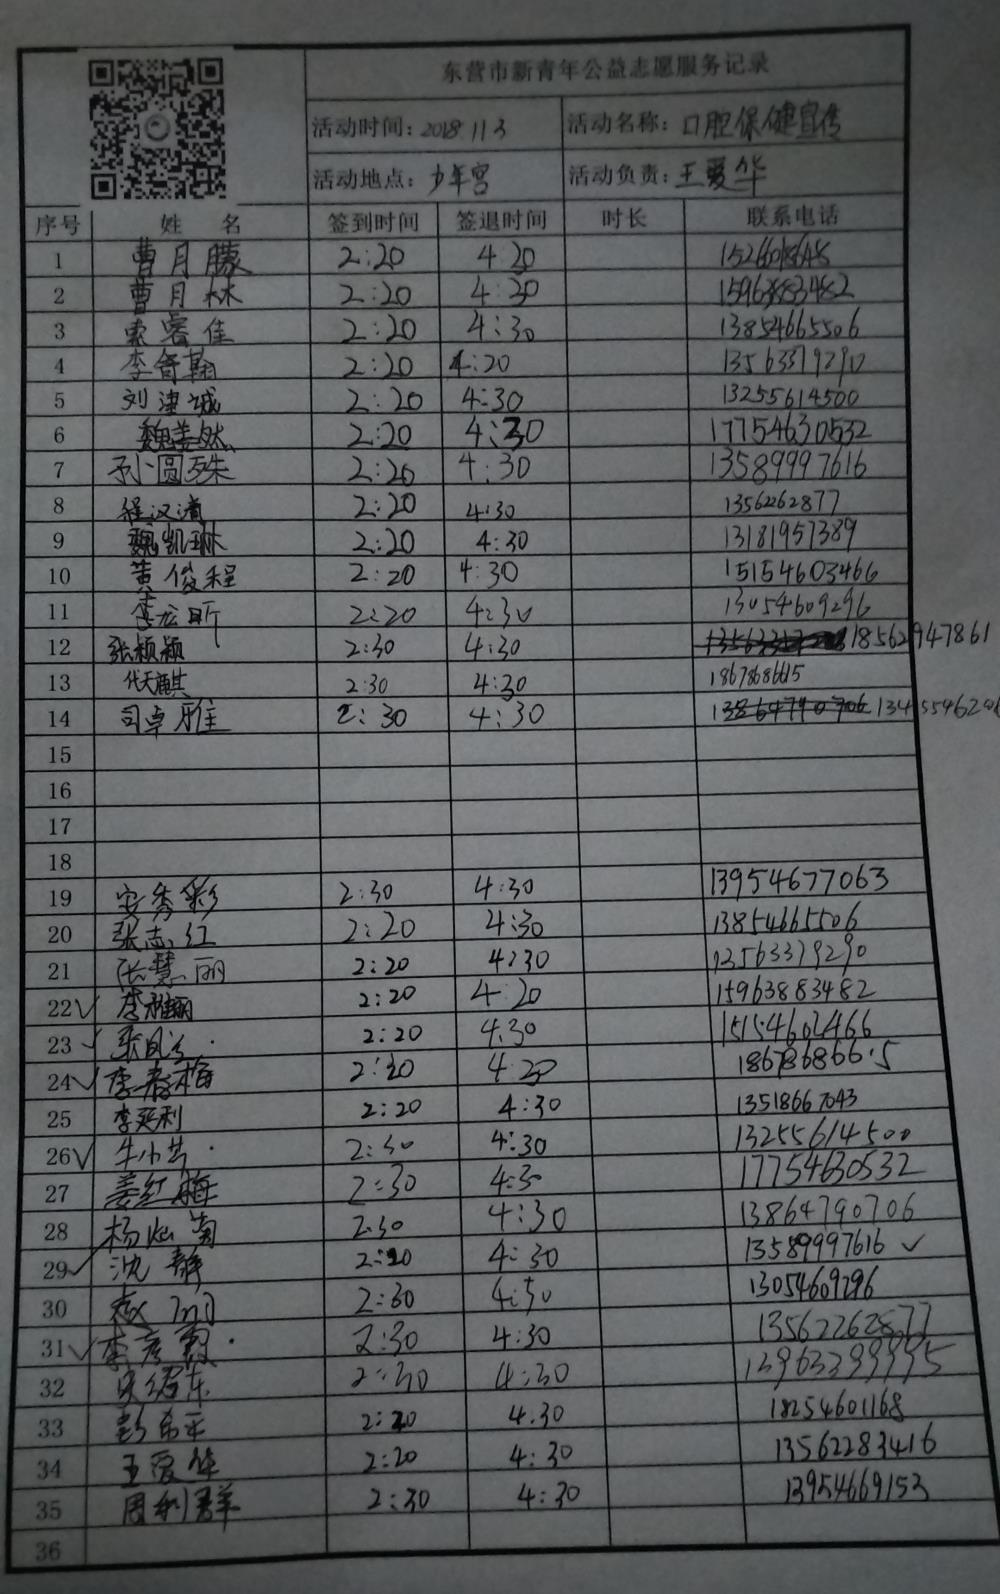 东营市新青年公益志愿服务记录
活动时间：2018 11 3 活动名称：口腔保健宣传
活动地点：少年宫 活动负责：王爱华
序号 姓 名 签到时间 签退时间 时长 联系电话
1 曹月朦 2:20 4 20
2 曹月林 2:20 4:30 15963883482
3 索睿佳 2:20 4:30 13854665506
4 李奇翰 2:20 4:20 13563379290
5 刘津城 2:20 4:30 13255614500
6 魏姜然 2:20 4:30 17754630532
7 孙圆珠 2:20 4:30 13589997616
8 程汉清 2:20 4:30 1356262877
9 魏凯琳 2:20 4:30 13181957389
10 黄俊程 2:20 4:30 15154603466
11 李龙昕 2:20 4:30 13054609296
12 张颖颖 2:30 4:30 18562947861
13 代天麒 2:30 4:30 1867868615
14 司卓雅 2:30 4:30
15
16
17
18
19 安秀彩 2:30 4:30 13954677063
20 张志红 2:20 4:30 13854665506
21 张慧丽 2:20 4:30 13563379290
22✓ 李雅丽 2:20 4:20 15963883482
23✓ 2:20 4:30
24✓ 李春梅 2:20 4:20
25 李延利 2:20 4:30 13518667043
26✓ 牛小芳 2:30 4:30 13255614500
27 姜红梅 2:30 4:30 17754630532
28 杨灿菊 2:30 4:30 13864790706
29✓ 沈静 2:20 4:30 13589997616 ✓
30 2:30 4:30 13054609296
31✓ 李彦霞 2:30 4:30 13562262877
32 2:30 4:30 13963299995
33 2:20 4:30 18254601168
34 王爱华 2:20 4:30 13562283416
35 周利群 2:30 4:30 13954669153
36